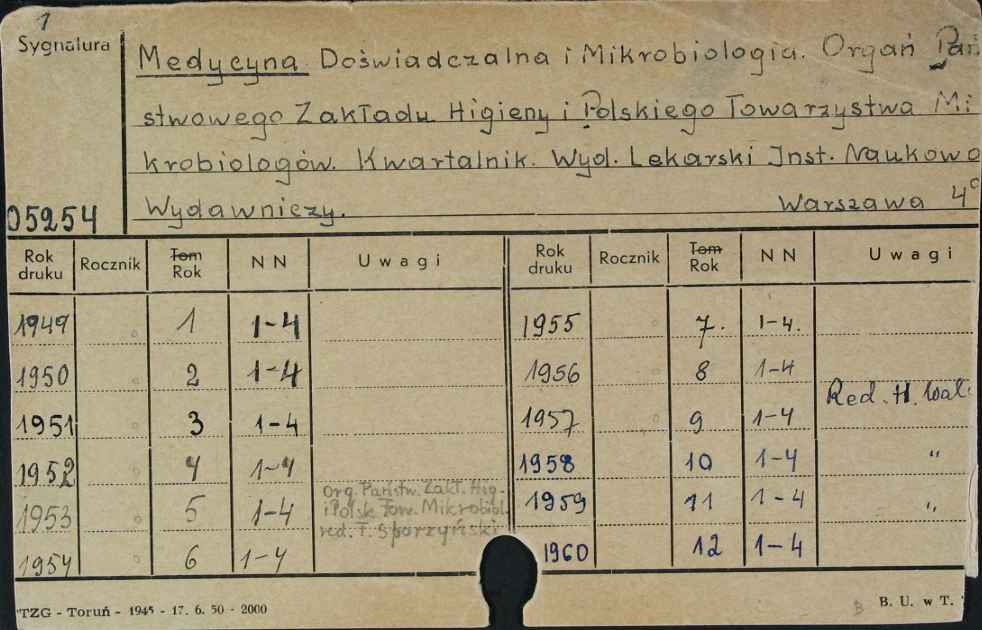 1
Sygnatura
05254
Medycyna Doświadczalna i Mikrobiologia. Organ Pań
stwowego Zakładu Higieny i Polskiego Towarzystwa Mi
krobiologów. Kwartalnik. Wyd. Lekarski Inst. Naukowo
Wydawniczy. Warszawa 4°
Rok druku Rocznik Tom Rok N N Uwagi Rok druku Rocznik Tom Rok N N Uwagi
1949 1 1-4 1955 7. 1-4.
1950 2 1-4 1956 8 1-4
1951 3 1-4 1957 9 1-4 Red. H.
1952 4 1-4 1958 10 1-4 "
1953 5 1-4 Org. Państw. Zakł. Hig. i Polsk Tow. Mikrobiol. red. T. Sporzyński 1959 11 1-4 "
1954 6 1-4 1960 12 1-4
TZG - Toruń - 1945 - 17. 6. 50 - 2000
B B. U. w T.